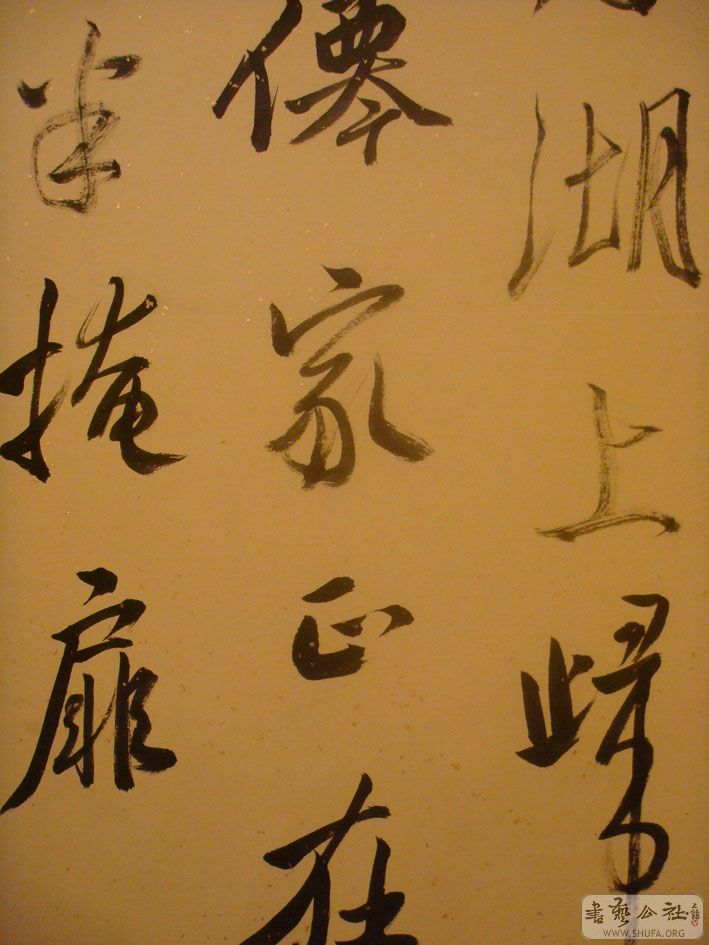 湖上歸
僊家正在
半掩扉
書藝公社
WWW.SHUFA.ORG